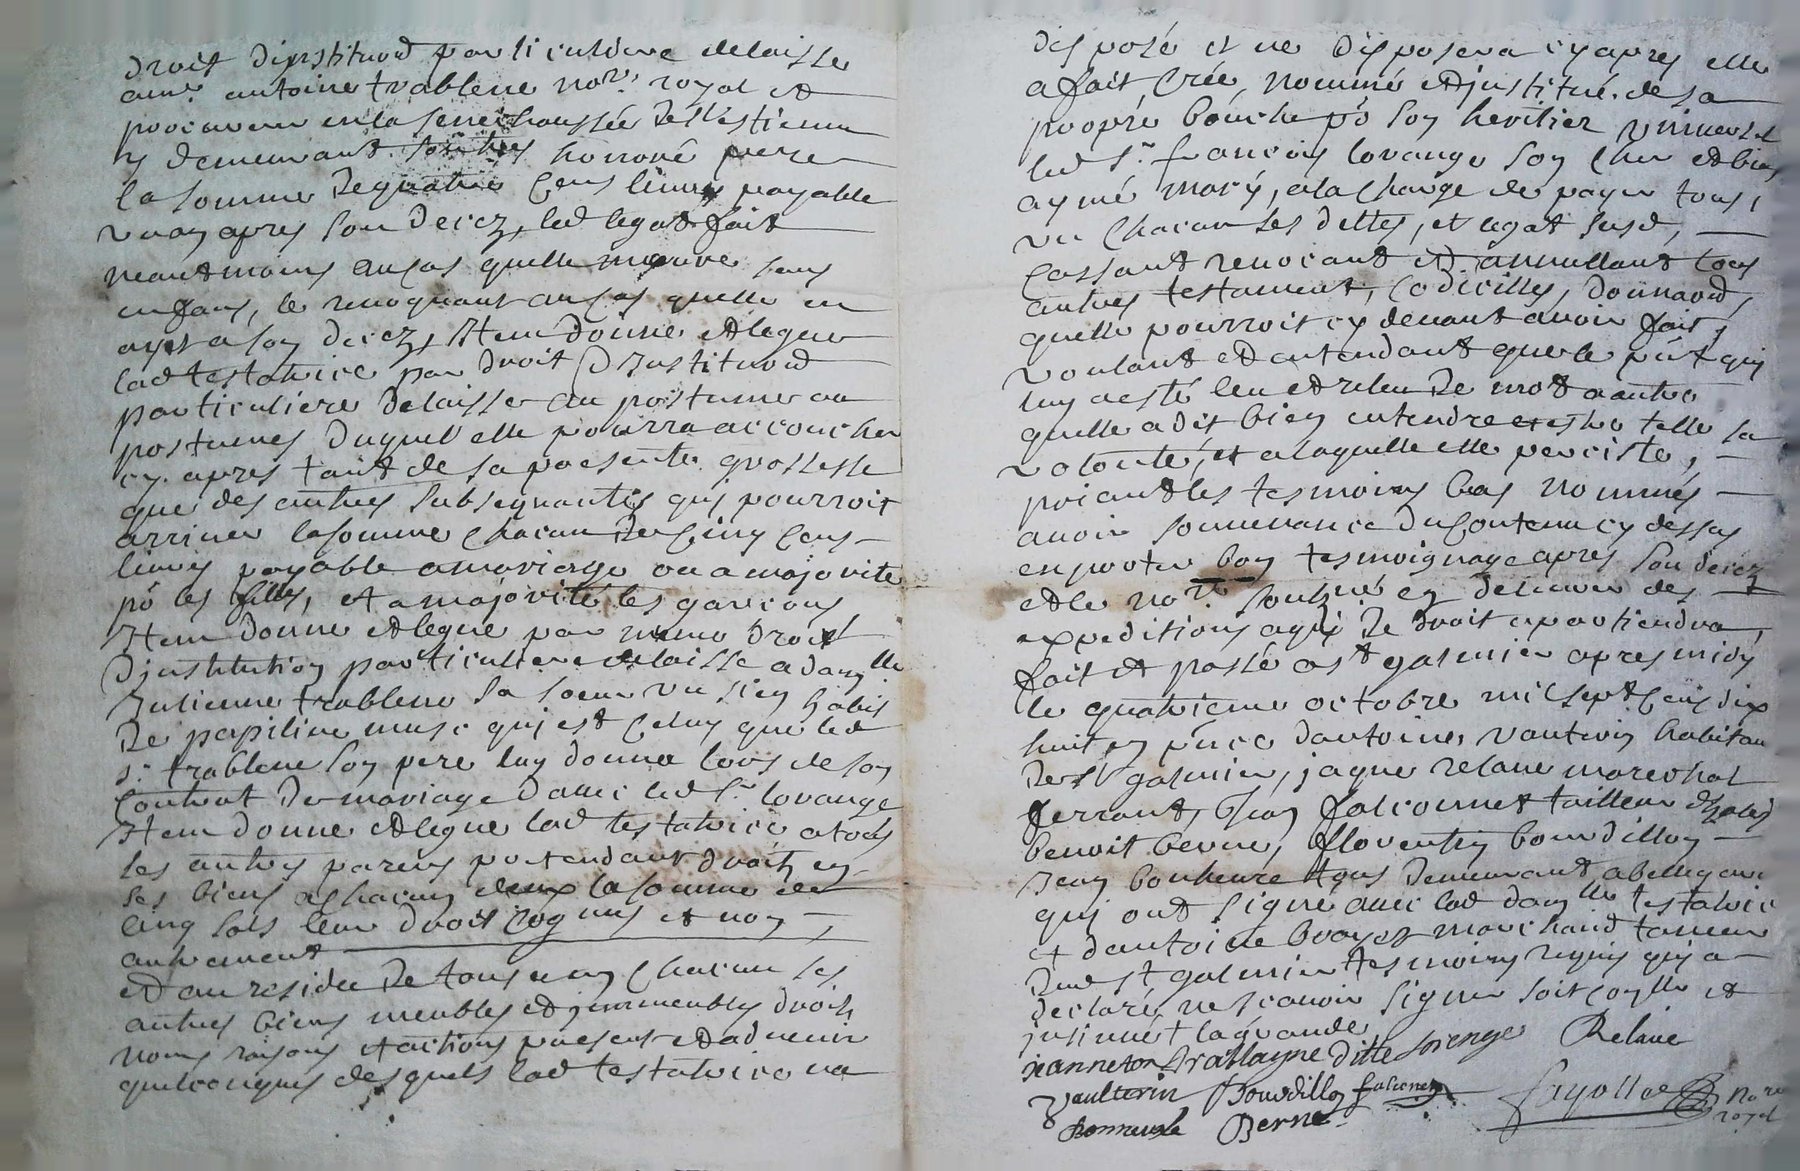 droit dinstituōn particuliere delaisse
a mr. antoine trablene nore. royal et
procureur en la senechaussée destienne
y demeurant son tres honnoré pere
la somme de quatre cens livres payable
un an apres son decez, led legat fait
neantmoins au cas quelle meure sans
enfans, le revoquant au cas quelle en
ayt a son decez, Item donne et legue
lad testatrice par droit dinstituōn
particuliere delaisse au postume ou
postumes duquel elle pourra accoucher
cy apres tant de sa presente grossesse
que des autres subsequantes qui pourroit
arriver la somme chacun de cinq cens
livres payable a mariage ou a majorite
pō les filles, et a majorité les garcons
Item donne et legue par mesme droit
dinstitution particuliere delaisse a damlle
Julienne trablene sa soeur un sien habit
de papiline musc qui est celuy que led
sr. trablene son pere luy donna lors de son
contrat de mariage d'avec led sr. lorange
Item donne et legue lad testatrice a tous
les autres parens pretendant droit en
ses biens a chacun deux la somme de
cinq sols leur droit cognus et non
autrement
et au residu de tous un chacun ses
autres biens meubles et immeubles droits
noms raisons et actions presents et advenir
quelconques desquels lad testatrice na
disposé et ne disposera cy apres elle
a fait, crée, nommé et institué de sa
propre bouche pō son heritier universel
led sr. francois lorange son cher et bien
aymé mary, a la charge de payer tous
un chacun ses dettes, et legat susd,
cassant revocant et annullant tous
autres testament, codicilles, donnaōn,
quelle pourroit cy devant avoir fait,
voulant et entendant que le pnt qui
luy a esté leu et releu de mot a autre
quelle a dit bien entendre estre telle sa
volonté, et a laquelle elle perciste,
priant les tesmoins bas nommés
avoir souvenance du contenu cy dessus
en porter bon tesmoignage apres son decez
et le nore. soubzné en delivrer des
expeditions a qui de droit apartiendra,
fait et passé a st galmier apres midy
le quatrieme octobre mil sept cens dix
huit en pñce dantoine vautrin habitan
de st galmier, jaque relave marechal
ferrant, jean falconnet tailleur dhabis
benoit berne, fleorentin bourdillon
Jean bonheure tous demeurant a bellegarde
qui ont signé avec lad damlle testatrice
et dantoine boyer marchand taneur
dud st galmier tesmoins requis qui a
declaré ne scavoir signer soit conllé et
insinué t la grande
jeanneton trablayne ditte lorenge Relave
Vaulterin Bourdillon falconet fayolle nore royal
Bonneure Berne